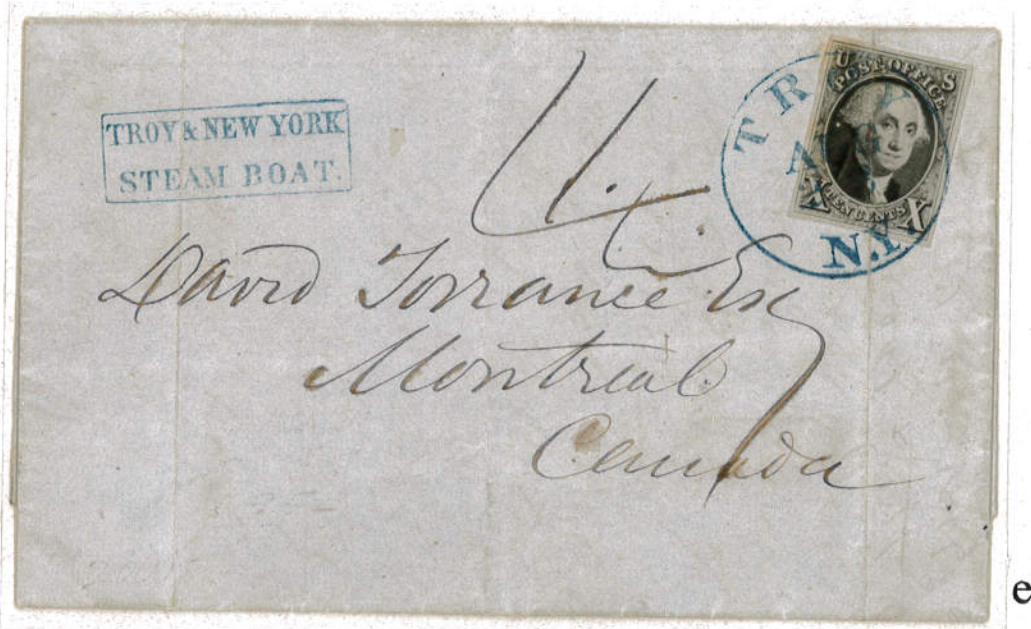 TROY & NEW YORK
STEAM BOAT.
TROY
N.Y.
U S
POST OFFICE
TEN CENTS
X X
David Torrance Esq
Montreal
Canada
e